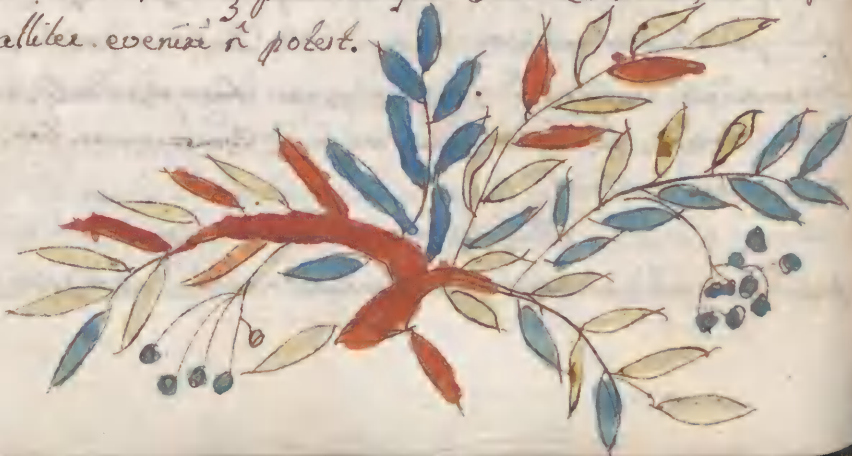 alliter evenire n̂ potest.